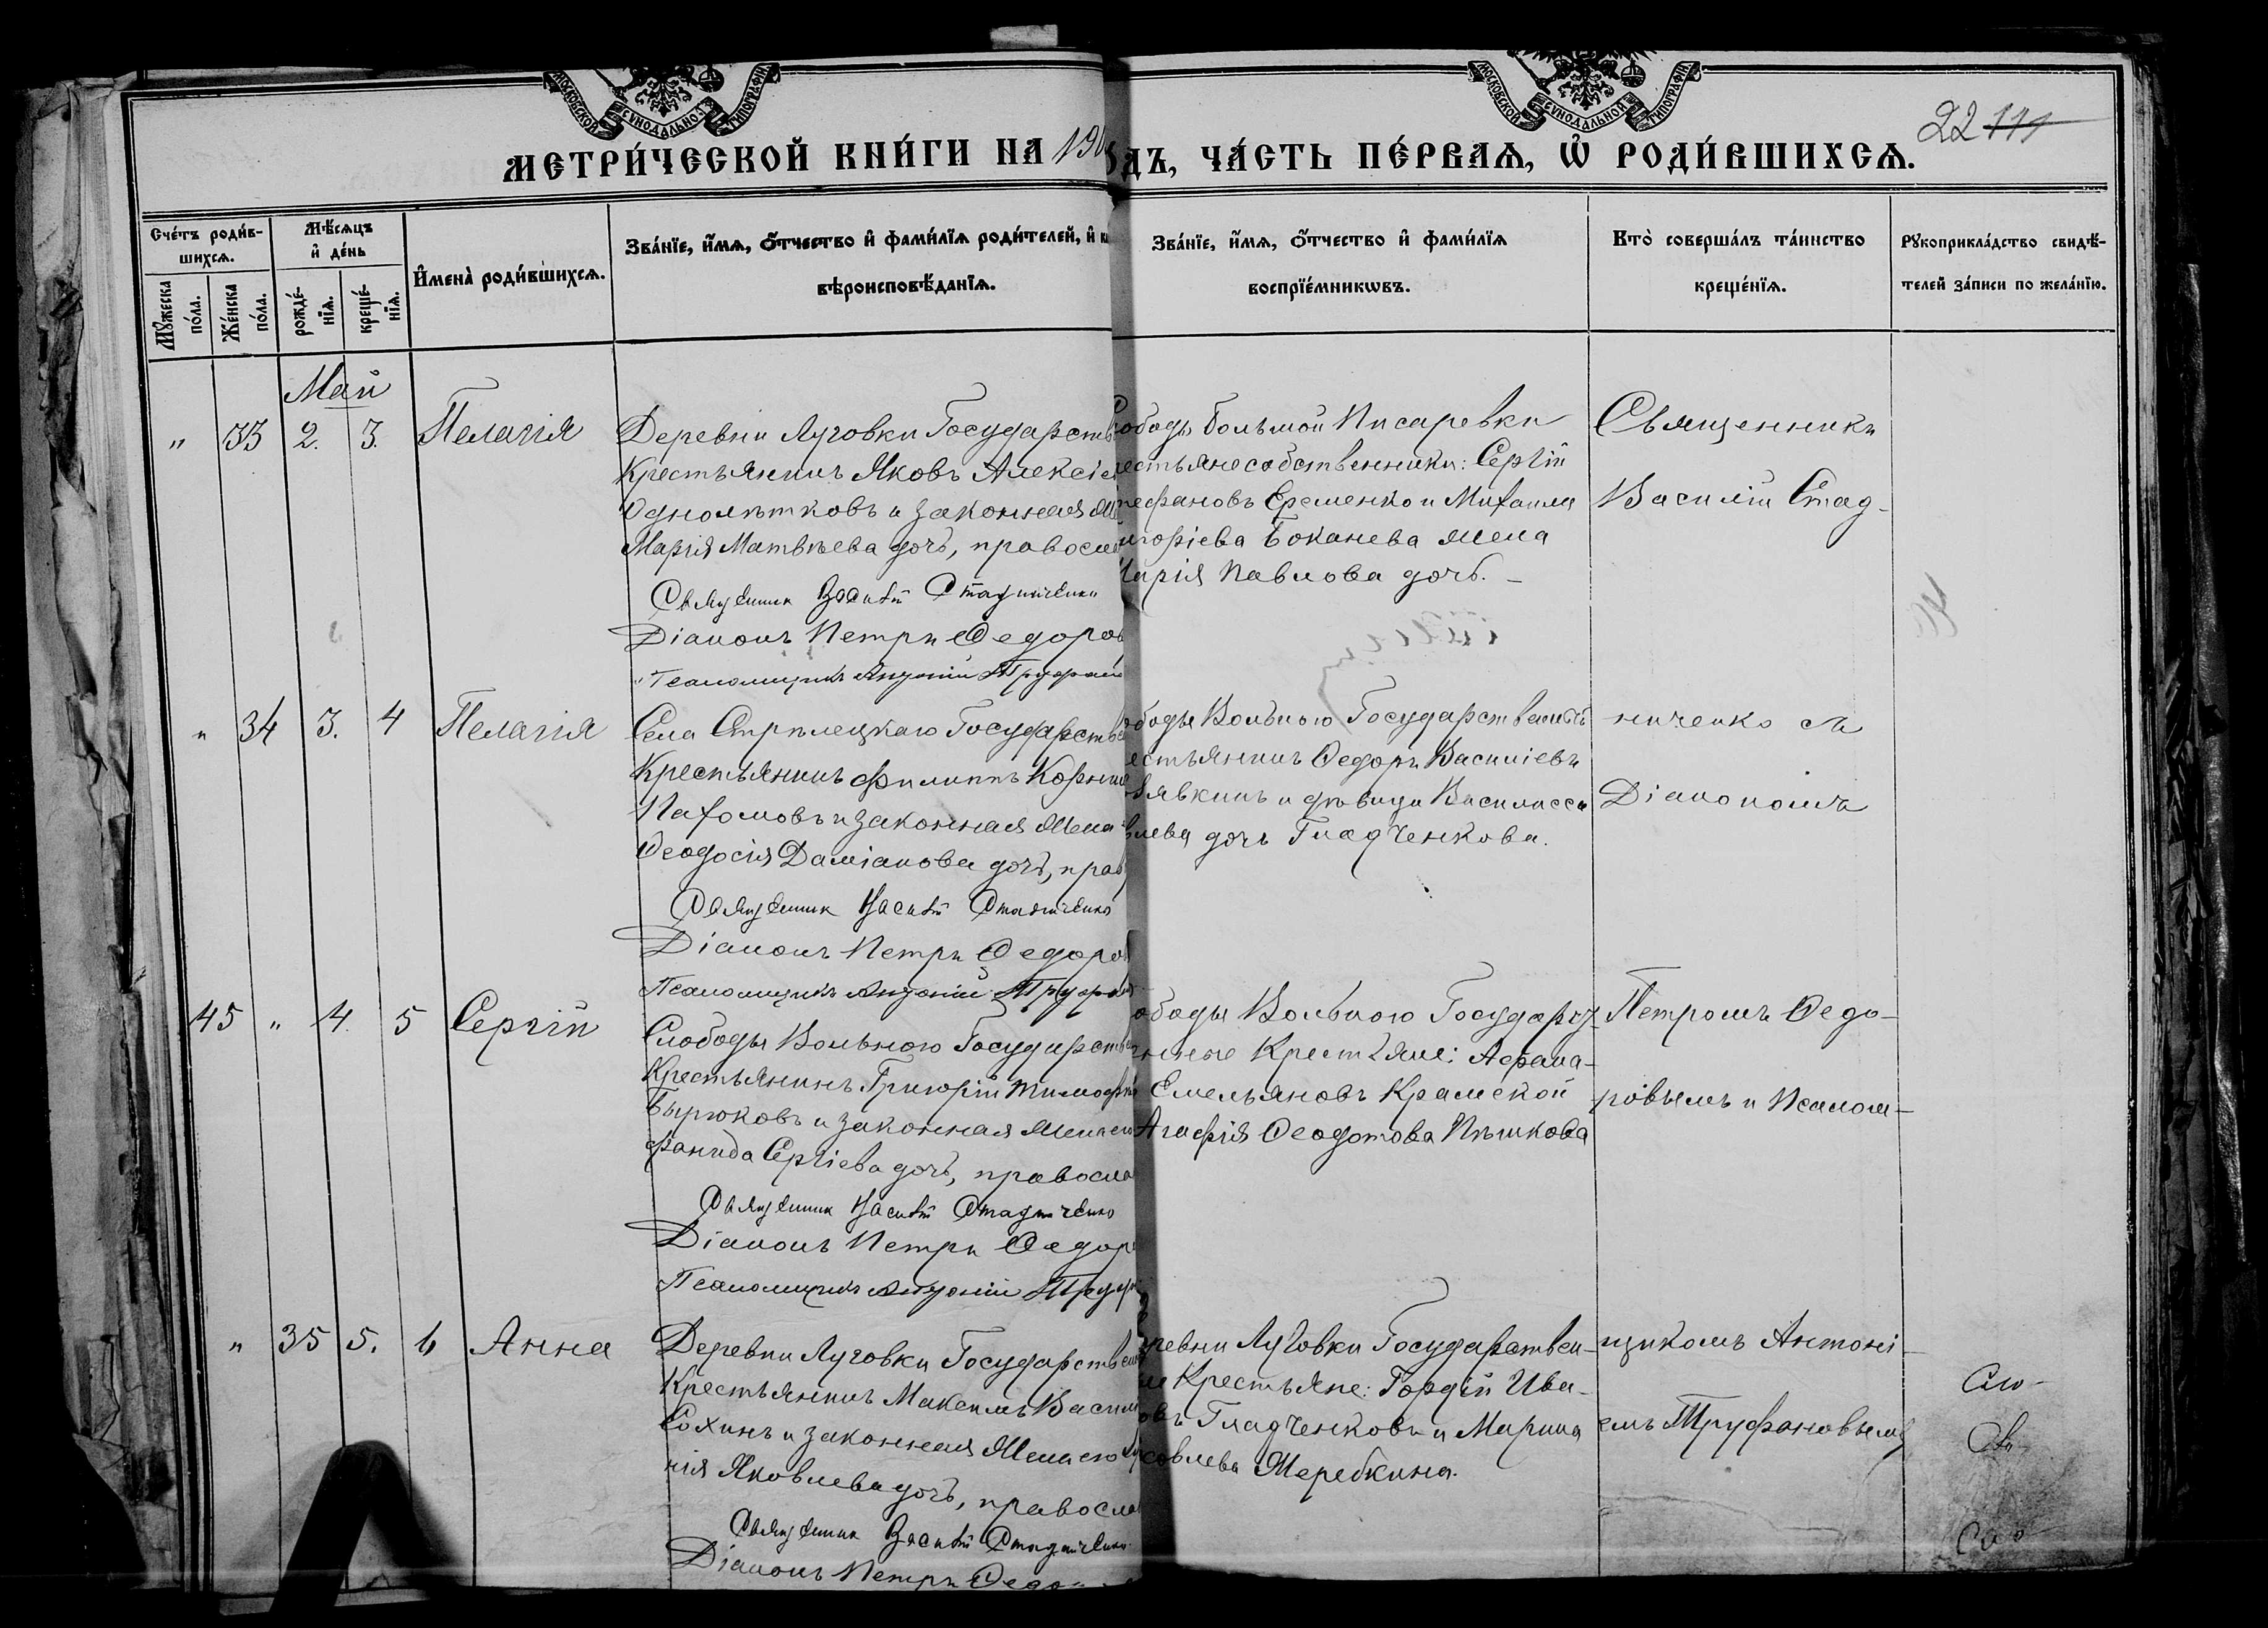 МОСКОВСКОЙ СѴНОДАЛЬНО ТИПОГРАФІИ
МОСКОВСКОЙ СѴНОДАЛЬНОЙ ТИПОГРАФІИ
22 111
МЕТРИ́ЧЕСКОЙ КНИ́ГИ НА 190
ДЪ, ЧА́СТЬ ПЕ́РВАѦ, Ѡ҆ РОДИ́ВШИХСѦ.
Сче́тъ роди́в-
шихсѧ.
Мꙋ́жеска по́ла.
Же́нска по́ла.
Мѣ́сѧцъ
и҆ де́нь
рожде́-
нїѧ.
креще́-
нїѧ.
И҆мена̀ роди́вшихсѧ.
Зва́нїе, и҆́мѧ, ѻ҆́тчество и҆ фами́лїѧ роди́телей, и҆
вѣроисповѣ́данїѧ.
Зва́нїе, и҆́мѧ, ѻ҆́тчество и҆ фами́лїѧ
воспрїе́мникѡвъ.
Кто̀ соверша́лъ та́инство
креще́нїѧ.
Рꙋкоприкла́дство свидѣ́-
телей за́писи по жела́нїю.
Май
" 33 2. 3. Пелагія
Деревни Луговки Государств
Крестьянинъ Яковъ Алексіе
Однолѣтковъ и законная
Марія Матвѣева дочь, правосла
Священник Василій Стадниченко
Діаконъ Петръ Ѳедоров
Псаломщикъ Антоній Труфан
ободы Большой Писаревки
рестьяне собственники: Сергій
тефановъ Еременко и Михаила
игоріева Боканева жена
Марія Павлова дочь. –
Священникъ
Василій Стад-
" 34 3. 4 Пелагія
Села Стрѣлецкаго Государств
Крестьянинъ Филиппъ Корни
Пахомовъ и законная жена
Ѳеодосія Даміанова дочь, прав
Священник Василій Стадниченко
Діаконъ Петръ Ѳедоро
Псаломщикъ Антоній Труфан
ободы Вольного Государственный
естьянинъ Ѳедоръ Василіевъ
и дѣвица Василисса
влева дочь Гладченкова.
ниченко съ
Діакономъ
45 " 4. 5 Сергій
Слободы Вольного Государств
Крестьянинъ Григорій Тимофѣ
Бирюковъ и законная жена его
Фанида Сергіева дочь, правосла
Священник Василій Стадниченко
Діаконъ Петръ Ѳедор
Псаломщикъ Антоній Труф
ободы Вольного Государ-
нные Крестьяне: Афана-
Емельяновъ Крамской
Агафія Ѳеодотова Пѣшкова
Петромъ Ѳедо-
ровымъ и Псалом-
" 35 5. 6 Анна
Деревни Луговки Государствен
Крестьянинъ Максимъ Васил
Сохинъ и законная жена его
Яковлева дочь, правосла
Священник Василій Стадниченко
Діаконъ Петръ Ѳедо
ревни Луговки Государствен-
Крестьяне: Гордій Ива-
овъ Гладченковъ и Марина
ковлева Жеребкина.
щикомъ Антоні-
емъ Труфановымъ